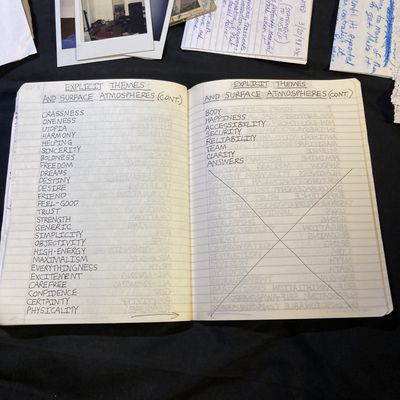 EXPLICIT THEMES
AND SURFACE ATMOSPHERES (CONT.)
CRASSNESS
ONENESS
UTOPIA
HARMONY
HELPING
SINCERITY
BOLDNESS
FREEDOM
DREAMS
DESTINY
DESIRE
FRIEND
FEEL-GOOD
TRUST
STRENGTH
GENERIC
SIMPLICITY
OBJECTIVITY
HIGH-ENERGY
MAXIMALISM
EVERYTHINGNESS
EXCITEMENT
CAREFREE
CONFIDENCE
CERTAINTY
PHYSICALITY
EXPLICIT THEMES
AND SURFACE ATMOSPHERES (CONT.)
BODY
HAPPINESS
ACCESSIBILITY
SECURITY
RELIABILITY
TEAM
CLARITY
ANSWERS